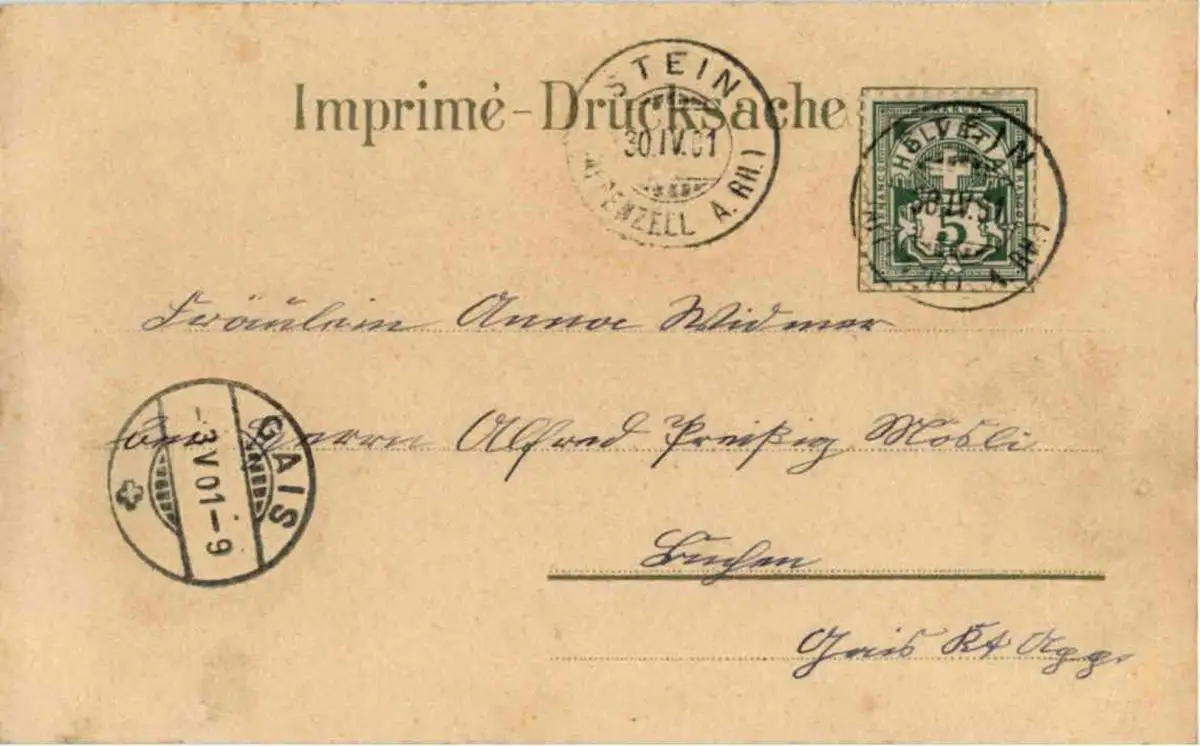 Imprimé-Drucksache
STEIN
30.IV.01
(APPENZELL A. RH.)
HELVETIA
30.IV.01
5
A. RH.)
Fräulein Anna Widmer
bei Herrn Alfred Preißig Mösli
GAIS
-3 V 01-9
Buchen
Gais Kt App.